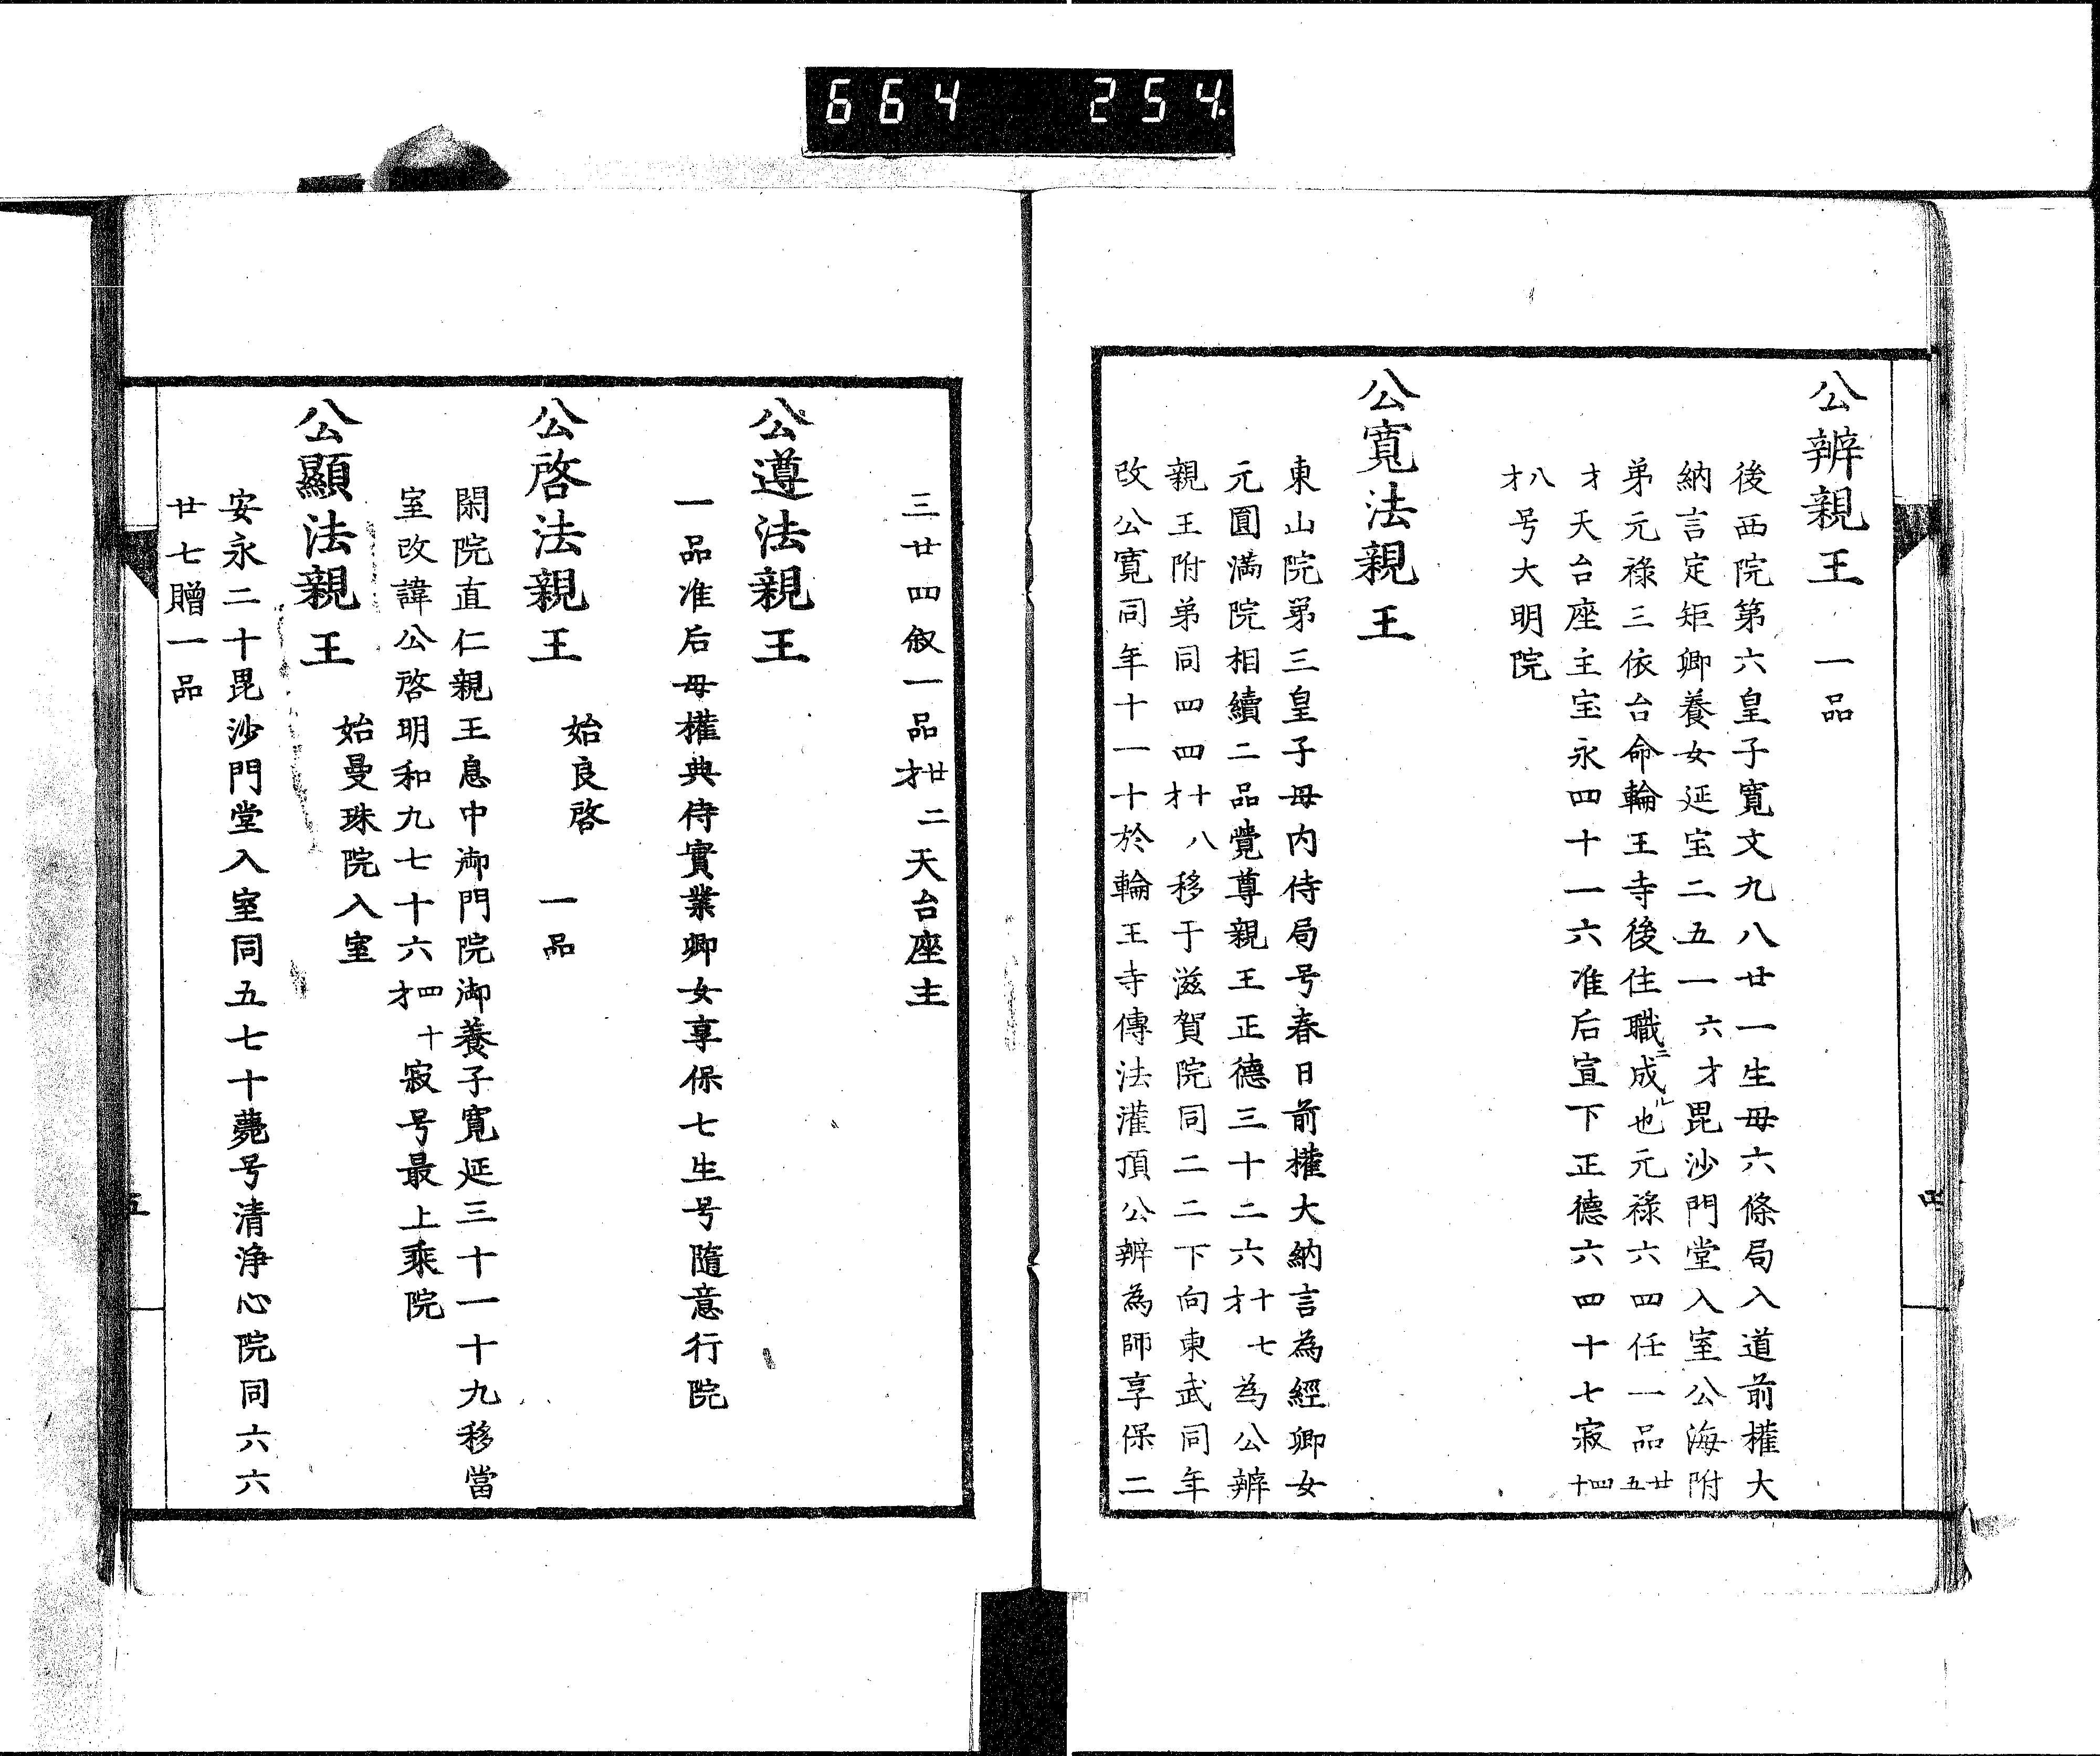 664 254.
公辨親王　一品
後西院第六皇子寬文九八廿一生母六條局入道前權大
納言定矩卿養女延宝二五一六才毘沙門堂入室公海附
弟元祿三依台命輪王寺後住職ニ成ル也元祿六四任一品廿五
才天台座主宝永四十一六准后宣下正德六四十七寂四十
八才号大明院
公寬法親王
東山院第三皇子母内侍局号春日前權大納言為經卿女
元圓滿院相續二品覺尊親王正德三十二六十七才為公辨
親王附弟同四四十八才移于滋賀院同二二下向東武同年
改公寬同年十一十於輪王寺傳法灌頂公辨為師享保二
四
三廿四敘一品廿二才天台座主
公遵法親王
一品准后母權典侍實業卿女享保七生号隨意行院
公啓法親王　始良啓　一品
閑院直仁親王息中御門院御養子寬延三十一十九移當
室改諱公啓明和九七十六四十才寂号最上乘院
公顯法親王　始曼珠院入室
安永二十毘沙門堂入室同五七十薨号清浄心院同六六
廿七贈一品
五